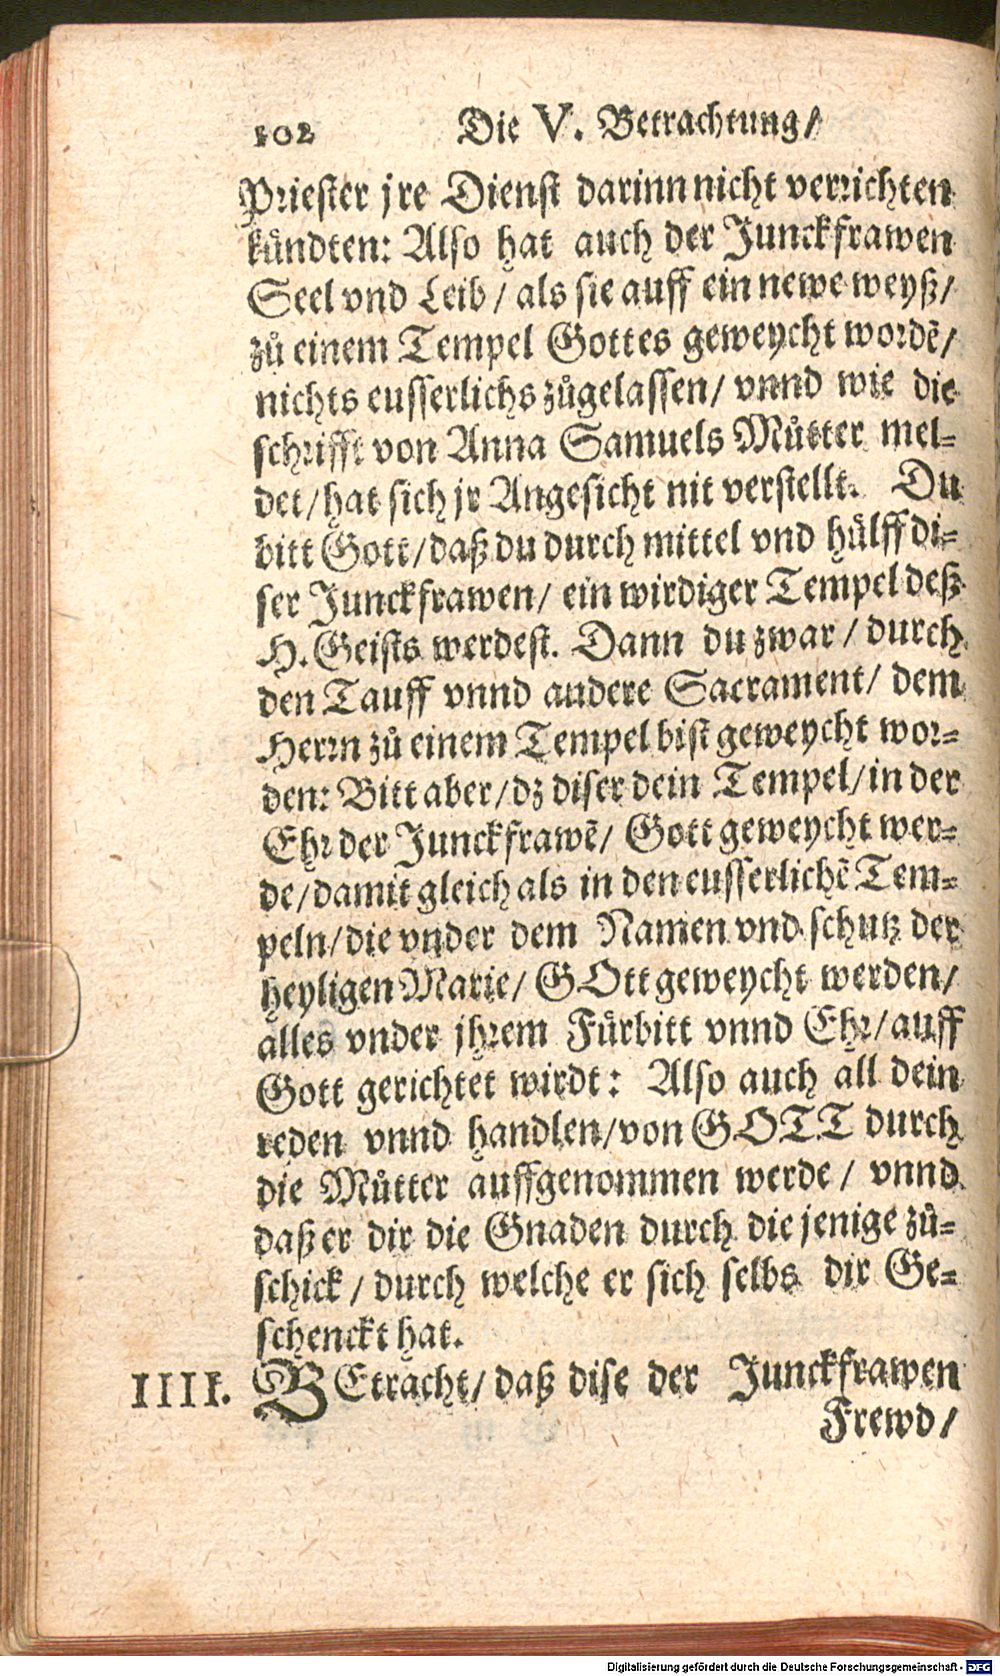 102 Die V. Betrachtung/
Priester jre Dienst darinn nicht verrichten
kůndten: Also hat auch der Junckfrawen
Seel vnd Leib / als sie auff ein newe weyß/
zů einem Tempel Gottes geweycht wordẽ/
nichts eusserlichs zůgelassen/ vnnd wie die
schrifft von Anna Samuels Můtter mel-
det/ hat sich jr Angesicht nit verstellt. Du
bitt Gott/ daß du durch mittel vnd hülff di-
ser Junckfrawen/ ein wirdiger Tempel deß
H. Geists werdest. Dann du zwar / durch
den Tauff vnnd andere Sacrament/ dem
Herrn zů einem Tempel bist geweycht wor-
den: Bitt aber/ dz diser dein Tempel/ in der
Ehr der Junckfrawẽ/ Gott geweycht wer-
de/ damit gleich als in den eusserlichẽ Tem-
peln/ die vnder dem Namen vnd schutz der
heyligen Marie/ GOtt geweycht werden/
alles vnder jhrem Fürbitt vnnd Ehr/ auff
Gott gerichtet wirdt: Also auch all dein
reden vnnd handlen/ von GOTT durch
die Můtter auffgenommen werde / vnnd
daß er dir die Gnaden durch die jenige zů-
schick / durch welche er sich selbs dir Ge-
schenckt hat.
IIII. BEtracht/ daß dise der Junckfrawen
Frewd/
Digitalisierung gefördert durch die Deutsche Forschungsgemeinschaft - DFG